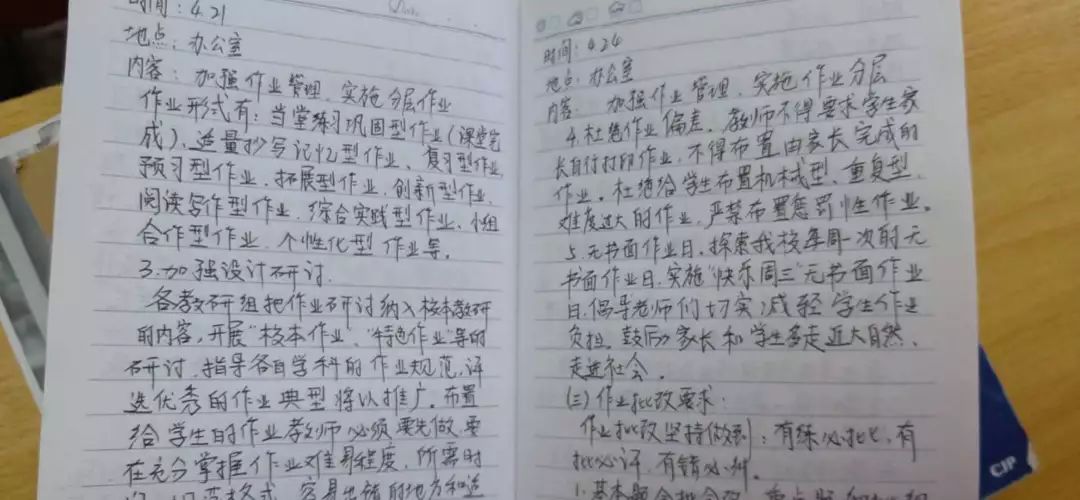 时间：4.21
地点：办公室
内容：加强作业管理，实施分层作业
作业形式有：当堂练习巩固型作业（课堂完
成）、适量抄写记忆型作业、复习型作业、
预习型作业、拓展型作业、创新型作业、
阅读写作型作业、综合实践型作业、小组
合作型作业、个性化型作业等。
3.加强设计研讨.
各教研组把作业研讨纳入校本教研
的内容，开展“校本作业”、“特色作业”等的
研讨，指导各自学科的作业规范，评
选优秀的作业典型将以推广。布置
给学生的作业教师必须要先做，要
在充分掌握作业难易程度，所需时
格式，容易出错的地方和
时间：4.24
地点：办公室
内容：加强作业管理，实施作业分层
4.杜绝作业偏差。教师不得要求学生家
长自行打印作业，不得布置由家长完成的
作业。杜绝给学生布置机械型、重复型、
难度过大的作业，严禁布置惩罚性作业。
5.无书面作业日。探索我校每周一次的无
书面作业日，实施“快乐周三”无书面作业
日，倡导老师们切实减轻学生作业
负担，鼓励家长和学生多走近大自然、
走进社会。
（三）作业批改要求：
作业批改坚持做到：有练必批，有
批必评，有错必纠。
1.基本题全批全改，重点题
CJP